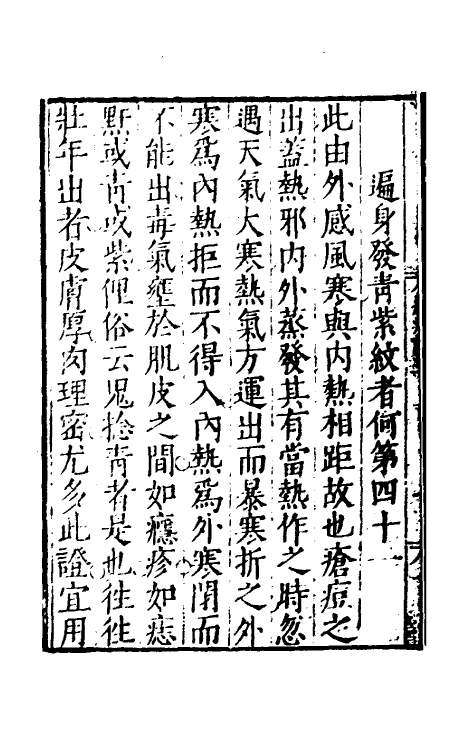 遍身發青紫紋者何第四十一
此由外感風寒與内熱相距故也瘡痘之
出蓋熱邪内外蒸發其有當熱作之時忽
遇天氣大寒熱氣方運出而暴寒折之外
寒爲内熱拒而不得入内熱爲外寒閉而
不能出毒氣壅於肌皮之間如癮疹如痣
㸃或青或紫俚俗云鬼捻青者是也徃徃
壯年出者皮膚厚肉理密尤多此證宜用